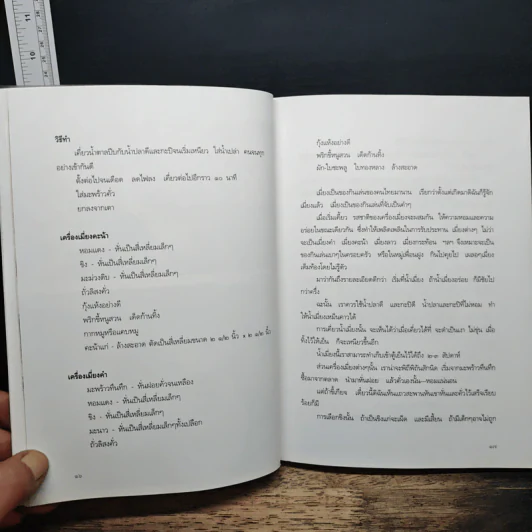 วิธีทำ
เคี่ยวน้ำตาลปีบกับน้ำปลาดีและกะปิจนเริ่มเหนียว ใส่น้ำเปล่า คนจนทุก
อย่างเข้ากันดี
ตั้งต่อไปจนเดือด ลดไฟลง เคี่ยวต่อไปอีกราว ๒๐ นาที
ใส่มะพร้าวคั่ว
ยกลงจากเตา
เครื่องเมี่ยงคะน้า
หอมแดง - หั่นเป็นสี่เหลี่ยมเล็กๆ
ขิง - หั่นเป็นสี่เหลี่ยมเล็กๆ
มะม่วงดิบ - หั่นเป็นสี่เหลี่ยมเล็กๆ
ถั่วลิสงคั่ว
กุ้งแห้งอย่างดี
พริกขี้หนูสวน เด็ดก้านทิ้ง
กากหมูหรือแคบหมู
คะน้าแก่ - ล้างสะอาด ตัดเป็นสี่เหลี่ยมขนาด ๒ ๑/๒ นิ้ว x ๒ ๑/๒ นิ้ว
เครื่องเมี่ยงคำ
มะพร้าวทึนทึก - หั่นฝอยคั่วจนเหลือง
หอมแดง - หั่นเป็นสี่เหลี่ยมเล็กๆ
ขิง - หั่นเป็นสี่เหลี่ยมเล็กๆ
มะนาว - หั่นเป็นสี่เหลี่ยมเล็กๆทั้งเปลือก
ถั่วลิสงคั่ว
กุ้งแห้งอย่างดี
พริกขี้หนูสวน เด็ดก้านทิ้ง
ผัก-ใบชะพลู ใบทองหลาง ล้างสะอาด
เมี่ยงเป็นของกินเล่นของคนไทยมานาน เรียกว่าตั้งแต่เกิดมาดิฉันก็รู้จัก
เมี่ยงแล้ว เมี่ยงเป็นของกินเล่นที่จับเป็นคำๆ
เมื่อเริ่มเคี้ยว รสชาติของเครื่องเมี่ยงจะผสมกัน ให้ความหอมและความ
อร่อยในขณะเดียวกัน ซึ่งทำให้เพลิดเพลินในการรับประทาน เมี่ยงต่างๆ ไม่ว่า
จะเป็นเมี่ยงคำ เมี่ยงคะน้า เมี่ยงลาว เมี่ยงกระท้อน ฯลฯ จึงเหมาะจะเป็น
ของกินเล่นเบาๆในครอบครัว หรือในหมู่เพื่อนฝูง กินไปคุยไป เผลอๆเมี่ยง
เต็มท้องโดยไม่รู้ตัว
มาว่ากันถึงรายละเอียดดีกว่า เริ่มที่น้ำเมี่ยง ถ้าน้ำเมี่ยงอร่อย ก็มีชัยไป
กว่าครึ่ง
ฉะนั้น เราควรใช้น้ำปลาดี และกะปิดี น้ำปลาและกะปิที่ไม่หอม ทำ
ให้น้ำเมี่ยงเหม็นคาวได้
การเคี่ยวน้ำเมี่ยงนั้น จะเห็นได้ว่าเมื่อเคี่ยวได้ที่ จะดำเป็นเงา ไม่ขุ่น เมื่อ
ทิ้งไว้ให้เย็น ก็จะเหนียวขึ้นอีก
น้ำเมี่ยงนี้เราสามารถทำเก็บเข้าตู้เย็นไว้ได้ถึง ๒-๓ สัปดาห์
ส่วนเครื่องเมี่ยงต่างๆนั้น เราน่าจะพิถีพิถันสักนิด เริ่มจากมะพร้าวทึนทึก
ซื้อมาจากตลาด นำมาหั่นฝอย แล้วคั่วเองนั้น-หอมแน่นอน
แต่ถ้าขี้เกียจ เดี๋ยวนี้ดิฉันเห็นแถวสะพานหันเขาหั่นและคั่วไว้เสร็จเรียบ
ร้อยก็มี
การเลือกขิงนั้น ถ้าเป็นขิงแก่จะเผ็ด และมีเสี้ยน ถ้ามีเด็กๆอาจไม่ถูก